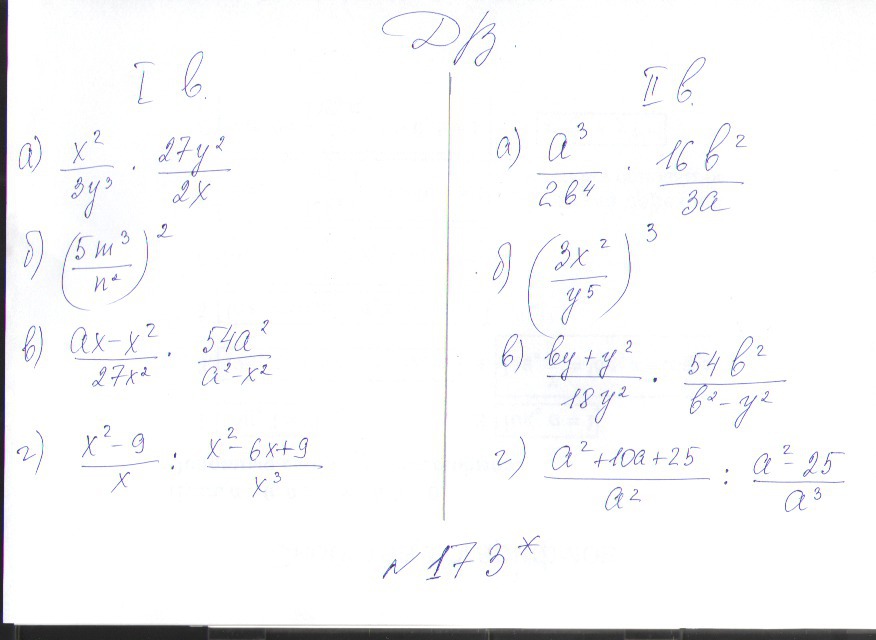 ДВ.
I в.
а) x²/3y³ · 27y²/2x
б) (5m³/n²)²
в) ax-x²/27x² · 54a²/a²-x²
г) x²-9/x : x²-6x+9/x³
II в.
а) a³/2b⁴ · 16b²/3a
б) (3x²/y⁵)³
в) by+y²/18y² · 54b²/b²-y²
г) a²+10a+25/a² : a²-25/a³
N 173*